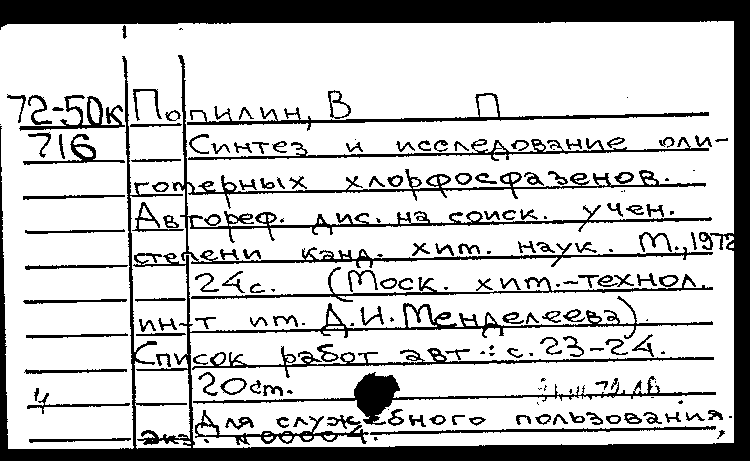 72-50к Попилин, В П
716 Синтез и исследование оли-
гомерных хлорфосфазенов.
Автореф. дис. на соиск. учен.
степени канд. хим. наук. М., 1972
24с. (Моск. хим.-технол.
ин-т им. Д.И. Менделеева).
Список работ авт.: с. 23-24.
20ст.
4 Для служебного пользования.
экз. N 00004.